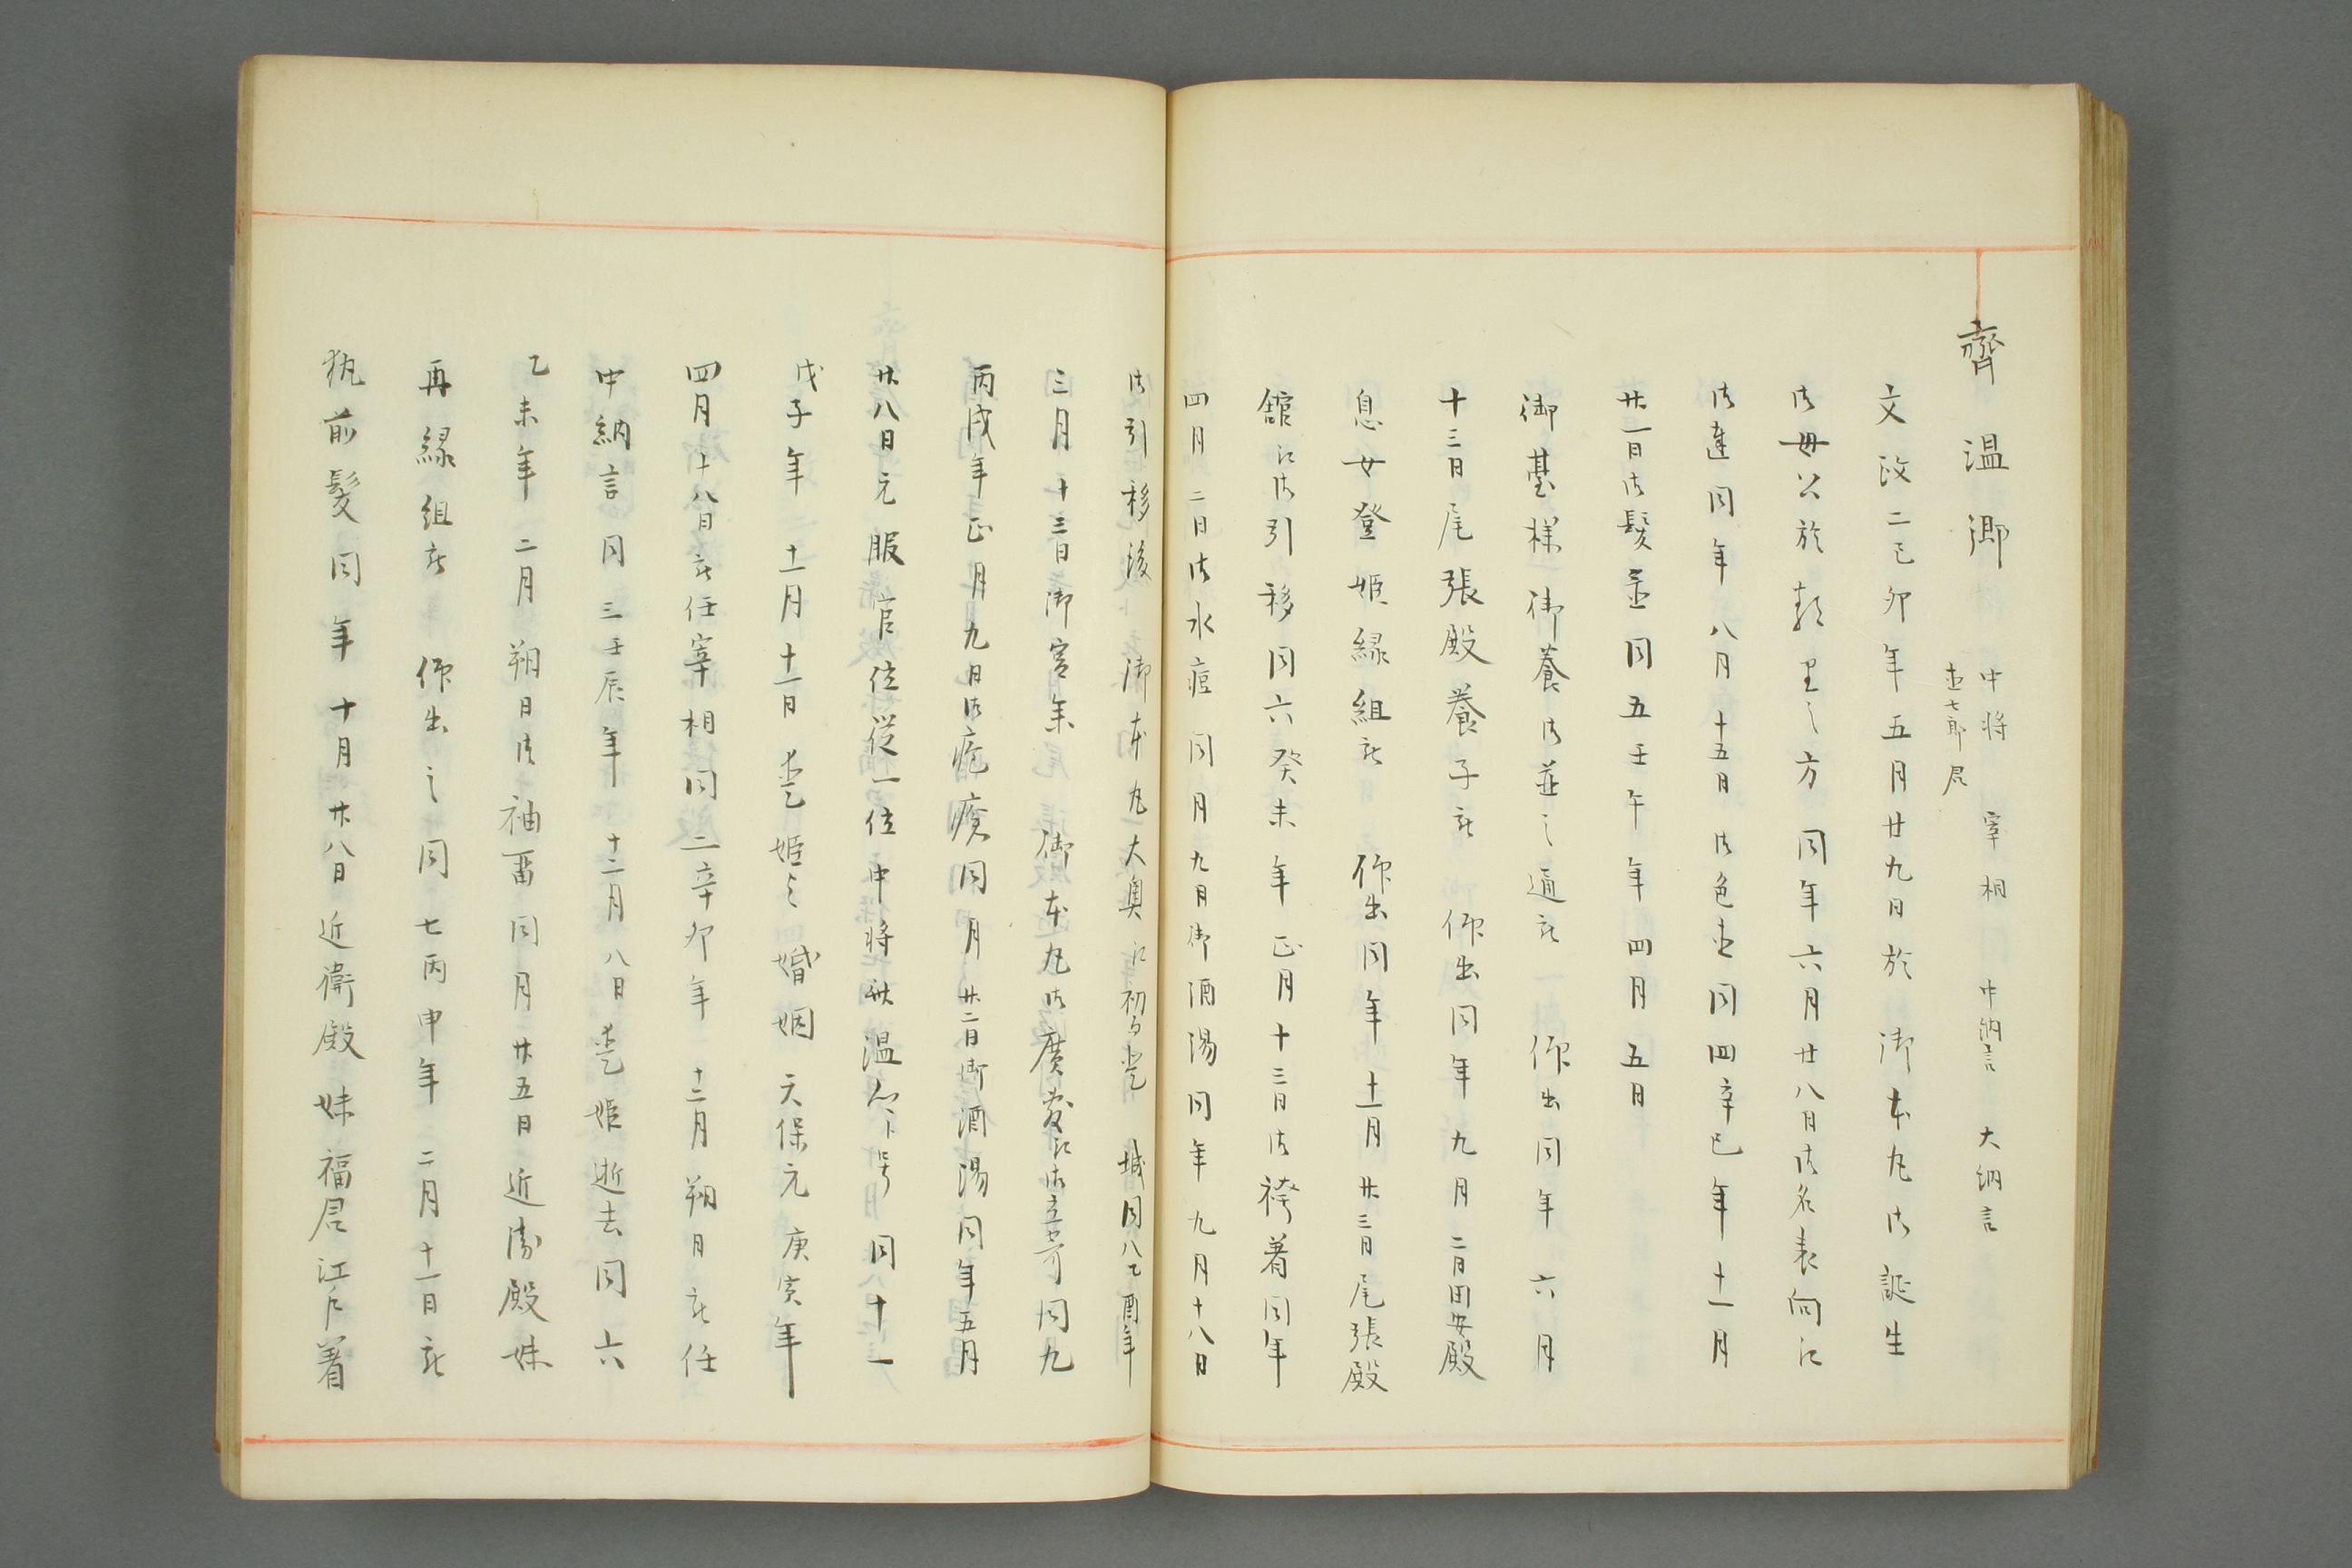 齊温卿 中将 宰相 中納言 大納言
直七郎君
文政二己卯年五月廿九日於 御本丸御誕生
御母公於 里之方 同年六月廿八日御名表向江
御達同年八月十五日御色直同四辛巳年十一月
廿一日御髪置同五壬午年四月五日
御臺様御養御並之通被 仰出同年六月
十三日尾張殿養子被 仰出同年九月二日田安殿
息女登姫縁組被 仰出同年十一月廿三日尾張殿
館江御引移同六癸未年正月十三日御袴着同年
四月二日御水痘同月九日御酒湯同年九月十八日
御引移後 御本丸大奥江初而登 城同八乙酉年
三月十三日御宮参 御本丸御廣敷江御立寄同九
丙戌年正月九日御疱瘡同月廿二日御酒湯同年五月
廿八日元服官位従二位中将秋温 ト号同十一
戊子年十一月十一日愛姫与婚姻天保元庚寅年
四月十八日被任宰相同二辛卯年十二月朔日被任
中納言同三壬辰年十二月八日愛姫逝去同六
乙未年二月朔日御袖留同月廿五日近衛殿妹
再縁組被 仰出之同七丙申年二月十一日被
執前髪同年十月廿八日近衛殿妹福君江戸着